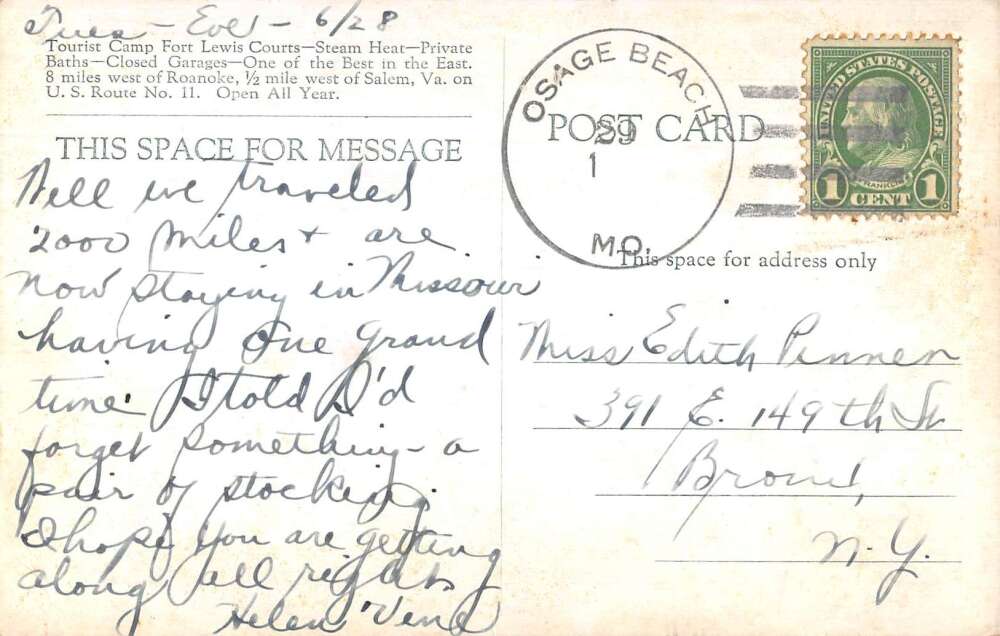 Tues - Eve - 6/28
Tourist Camp Fort Lewis Courts—Steam Heat—Private
Baths—Closed Garages—One of the Best in the East.
8 miles west of Roanoke, ½ mile west of Salem, Va. on
U. S. Route No. 11. Open All Year.
THIS SPACE FOR MESSAGE
Well we traveled
2000 miles + are
now staying in Missouri
having one grand
time. I told I'd
forget something - a
pair of stockings.
I hope you are getting
along all right.
Helen
OSAGE BEACH
29
1
MO.
POST CARD
UNITED STATES POSTAGE
FRANKLIN
1 CENT 1
This space for address only
Miss Edith Penner
391 E. 149th St
Bronx,
N.Y.